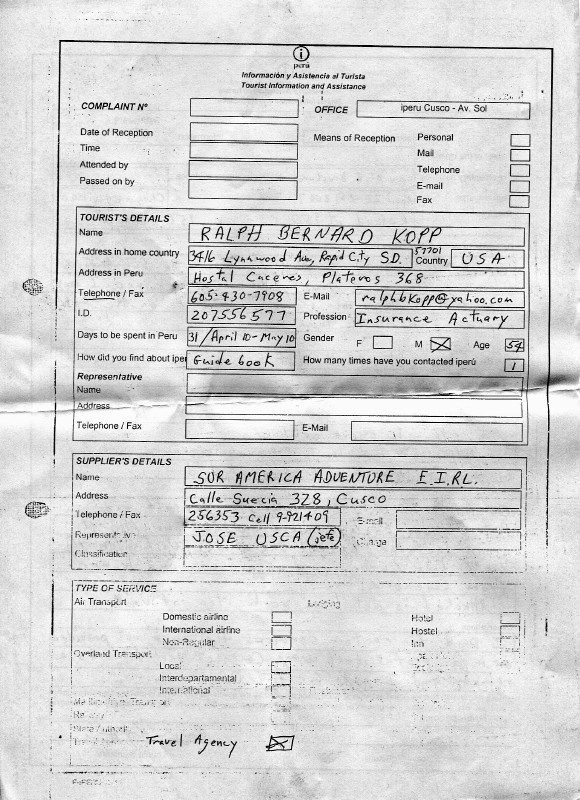 i
perú
Información y Asistencia al Turista
Tourist Information and Assistance
COMPLAINT Nº
OFFICE iperu Cusco - Av. Sol
Date of Reception
Means of Reception Personal
Time
Mail
Attended by
Telephone
Passed on by
E-mail
Fax
TOURIST'S DETAILS
Name RALPH BERNARD KOPP
Address in home country 3416 Lynnwood Ave, Rapid City SD. 57701 Country USA
Address in Peru Hostal Caceres, Plateros 368
Telephone / Fax 605-430-7908 E-Mail ralphbkopp@yahoo.com
I.D. 207556577 Profession Insurance Actuary
Days to be spent in Peru 31/April 10-May 10 Gender F M X Age 54
How did you find about iper Guide book How many times have you contacted iperú 1
Representative
Name
Address
Telephone / Fax E-Mail
SUPPLIER'S DETAILS
Name SUR AMERICA ADVENTURE E.I.RL.
Address Calle Suecia 328, Cusco
Telephone / Fax 256353 Cell 9-921409 E-mail
Representative JOSE USCA (jefe) Charge
Classification
TYPE OF SERVICE
Air Transport Lodging
Domestic airline Hotel
International airline Hostel
Non-Regular Inn
Overland Transport
Local
Interdepartamental
International
Travel Agency X